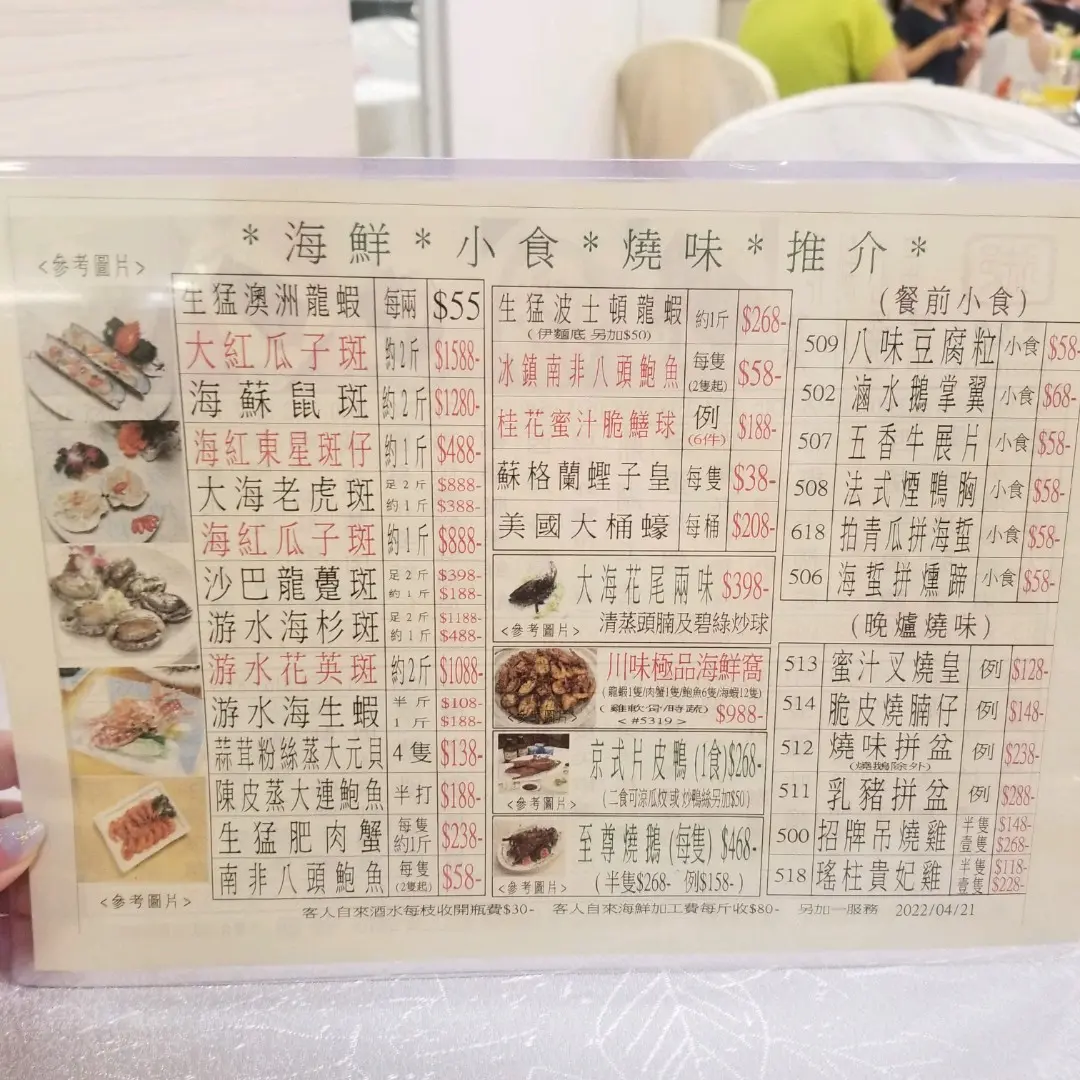 *海鮮*小食*燒味*推介*
<參考圖片>
生猛澳洲龍蝦 每兩 $55
大紅瓜子斑 約2斤 $1588-
海蘇鼠斑 約2斤 $1280-
海紅東星斑仔 約1斤 $488-
大海老虎斑 足2斤 $888-
約1斤 $388-
海紅瓜子斑 約1斤 $888-
沙巴龍躉斑 足2斤 $398-
約1斤 $188-
游水海杉斑 足2斤 $1188-
約1斤 $488-
游水花英斑 約2斤 $1088-
游水海生蝦 半斤 $108-
1斤 $188-
蒜茸粉絲蒸大元貝 4隻 $138-
陳皮蒸大連鮑魚 半打 $188-
生猛肥肉蟹 每隻約1斤 $238-
南非八頭鮑魚 每隻(2隻起) $58-
<參考圖片>
生猛波士頓龍蝦 約1斤 $268-
(伊麵底 另加$50)
冰鎮南非八頭鮑魚 每隻(2隻起) $58-
桂花蜜汁脆鱔球 例(6件) $188-
蘇格蘭蟶子皇 每隻 $38-
美國大桶蠔 每桶 $208-
大海花尾兩味 $398-
<參考圖片> 清蒸頭腩及碧綠炒球
川味極品海鮮窩
(龍蝦1隻/肉蟹1隻/鮑魚6隻/海蝦12隻)
(雞軟骨/時蔬)
<參考圖片> <#5319> $988-
京式片皮鴨 (1食)$268-
<參考圖片> (二食可涼瓜炆或炒鴨絲另加$50)
至尊燒鵝 (每隻) $468-
<參考圖片> (半隻$268- 例$158-)
(餐前小食)
509 八味豆腐粒 小食 $58-
502 滷水鵝掌翼 小食 $68-
507 五香牛展片 小食 $58-
508 法式煙鴨胸 小食 $58-
618 拍青瓜拼海蜇 小食 $58-
506 海蜇拼燻蹄 小食 $58-
(晚爐燒味)
513 蜜汁叉燒皇 例 $128-
514 脆皮燒腩仔 例 $148-
512 燒味拼盆 例 $238-
(燒鵝除外)
511 乳豬拼盆 例 $288-
500 招牌吊燒雞 半隻 $148-
壹隻 $268-
518 瑤柱貴妃雞 半隻 $118-
壹隻 $228-
客人自來酒水每枝收開瓶費$30- 客人自來海鮮加工費每斤收$80- 另加一服務 2022/04/21